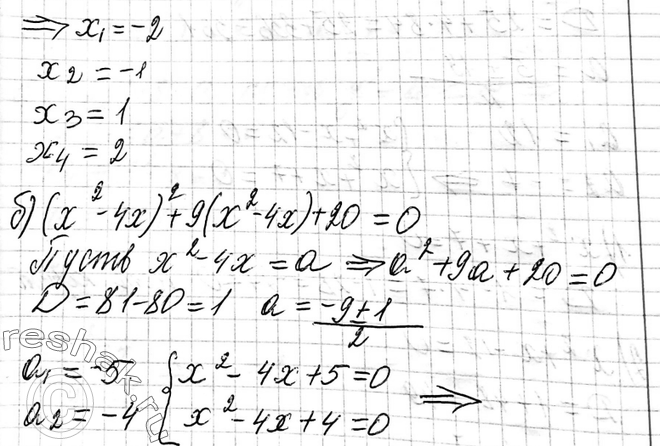 ⇒ x₁ = -2
x₂ = -1
x₃ = 1
x₄ = 2
б) (x² - 4x)² + 9(x² - 4x) + 20 = 0
Пусть x² - 4x = a ⇒ a² + 9a + 20 = 0
D = 81 - 80 = 1 a = (-9 ± 1)/2
a₁ = -5 { x² - 4x + 5 = 0
a₂ = -4 { x² - 4x + 4 = 0 ⇒
reshak.ru